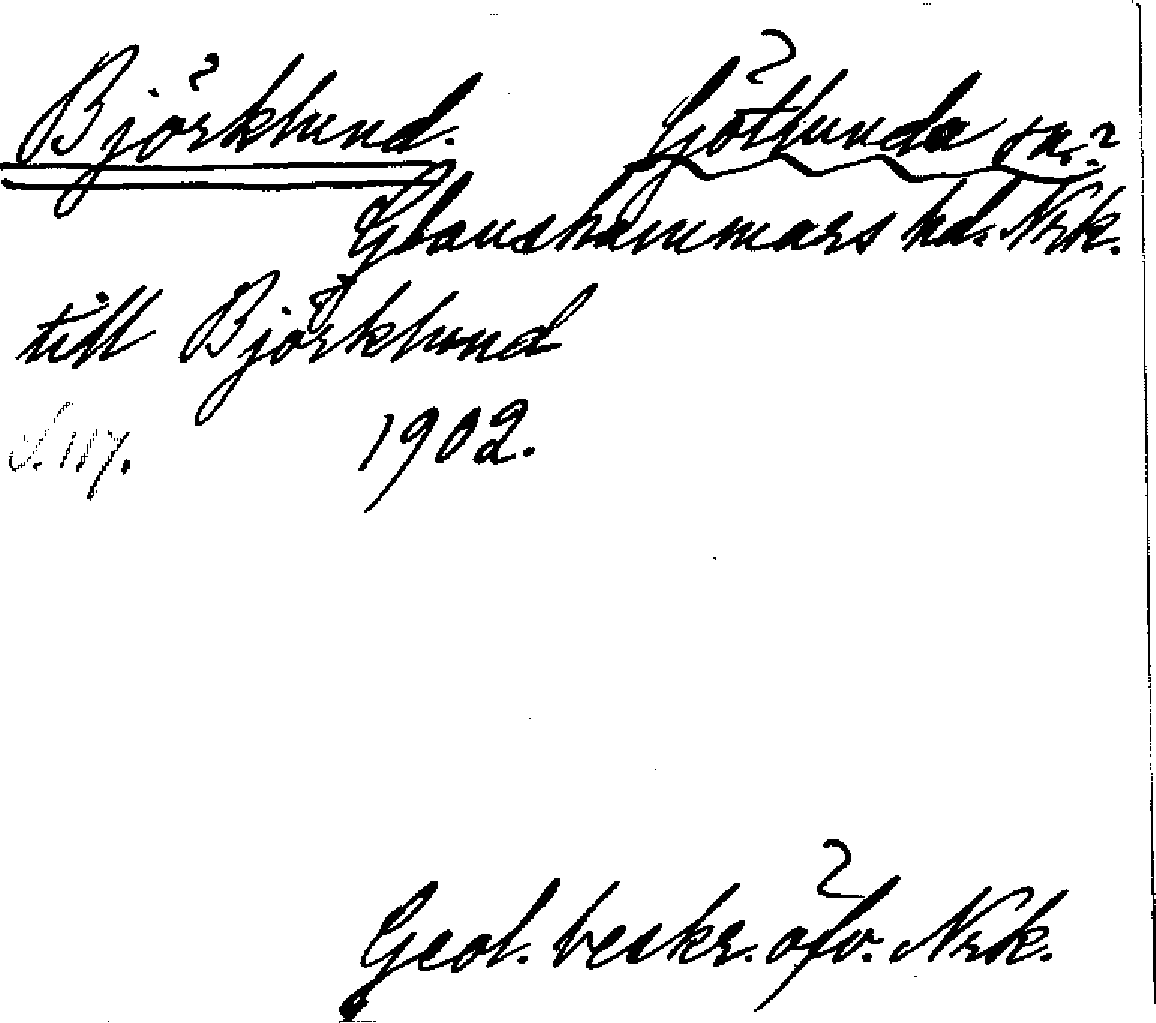 Björklund. Götlunda sn.?
Glanshammars hd. Nrk.
till Björklund
S. 187. 1902.
Geol. beskr. öfv. Nrk.